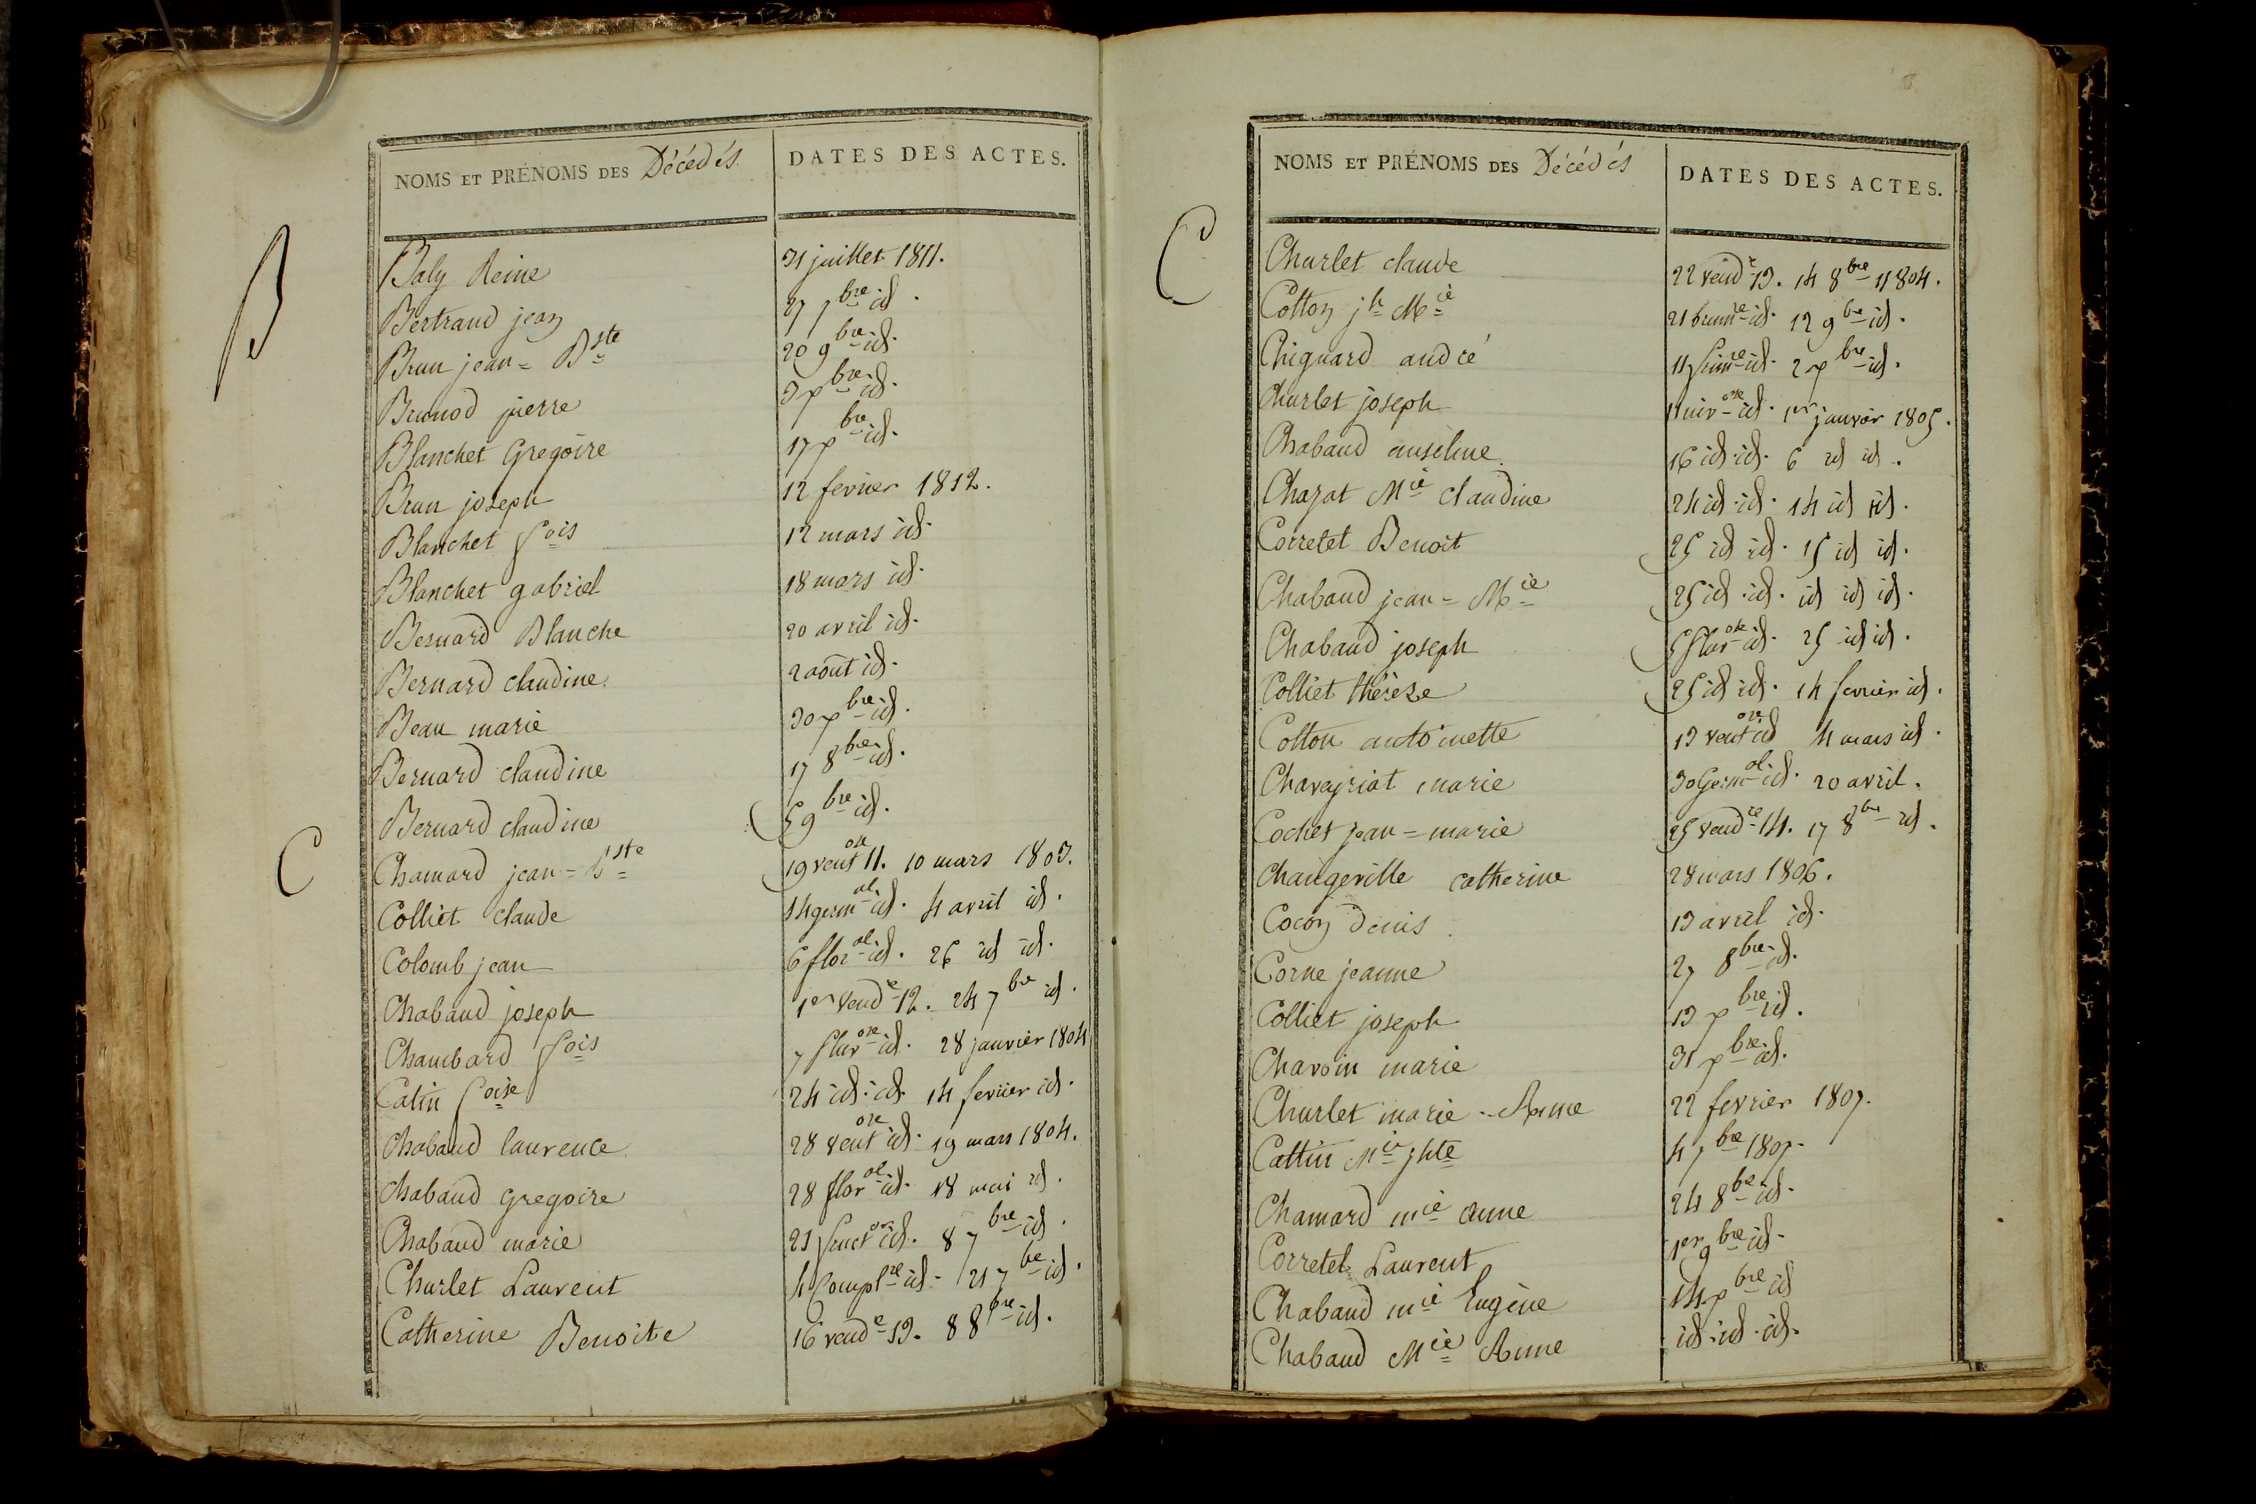 NOMS ET PRÉNOMS DES Décédés
DATES DES ACTES.
B
Baly Reine 31 juillet 1811.
Bertrand jean 27 7bre id.
Brun jean = Bste 20 9bre id.
Brunod pierre 3 xbre id.
Blanchet Gregoire 17 xbre id.
Brun joseph 12 fevrier 1812.
Blanchet fois 12 mars id.
Blanchet gabriel 18 mars id.
Besnard Blanche 20 avril id.
Bernard claudine 2 août id.
Beau marie 30 xbre id.
Bernard claudine 17 8bre id.
Bernard claudine 5 9bre id.
C
Chamard jean = Bste 19 ventose 11. 10 mars 1803.
Colliet claude 14 germal id. 4 avril id.
Colomb jean 6 floral id. 26 id id.
Chabaud joseph 1er vende 12. 24 7bre id.
Chambard fois 7 pluvose id. 28 janvier 1804
Catin foise 24 id. id. 14 fevrier id.
Chabaud laurence 28 ventose id. 19 mars 1804.
Chabaud Gregoire 28 floral id. 18 mai id.
Chabaud marie 21 fructor id. 8 7bre id.
Churlet Laurent 4 Complre id. 21 7bre id.
Catherine Benoite 16 vende 13. 8 8bre id.
NOMS ET PRÉNOMS DES Décédés
DATES DES ACTES.
C
Churlet claude 22 vende 13. 14 8bre 1804.
Cotton jh Mie 21 brumre id. 12 9bre id.
Chignard andré 11 frimre id. 2 xbre id.
Churlet joseph 11 nivose id. 1er janvier 1805.
Chabaud anselme 16 id. id. 6 id id.
Chazot Mie claudine 24 id. id. 14 id id.
Corretet Benoit 25 id id. 15 id id.
Chabaud jean = Mie 25 id. id. id id id.
Chabaud joseph 5 pluvose id. 25 id id.
Colliet thérèse 25 id id. 14 fevrier id.
Cotton antoinette 13 ventose id 4 mars id.
Chaveyriat marie 30 Germal id. 20 avril.
Cochet jean = marie 25 vendre 14. 17 8bre id.
Changeville catherine 28 mars 1806.
Cocon denis 13 avril id.
Corne jeanne 27 8bre id.
Colliet joseph 13 xbre id.
Charoin marie 31 xbre id.
Churlet marie - Anne 22 fevrier 1807.
Cattin Mie jhte 4 7bre 1807.
Chamard mie anne 24 8bre id.
Corretet Laurent 1er 9bre id.
Chabaud mie Eugène 14 xbre id
Chabaud Mie Anne id. id. id.